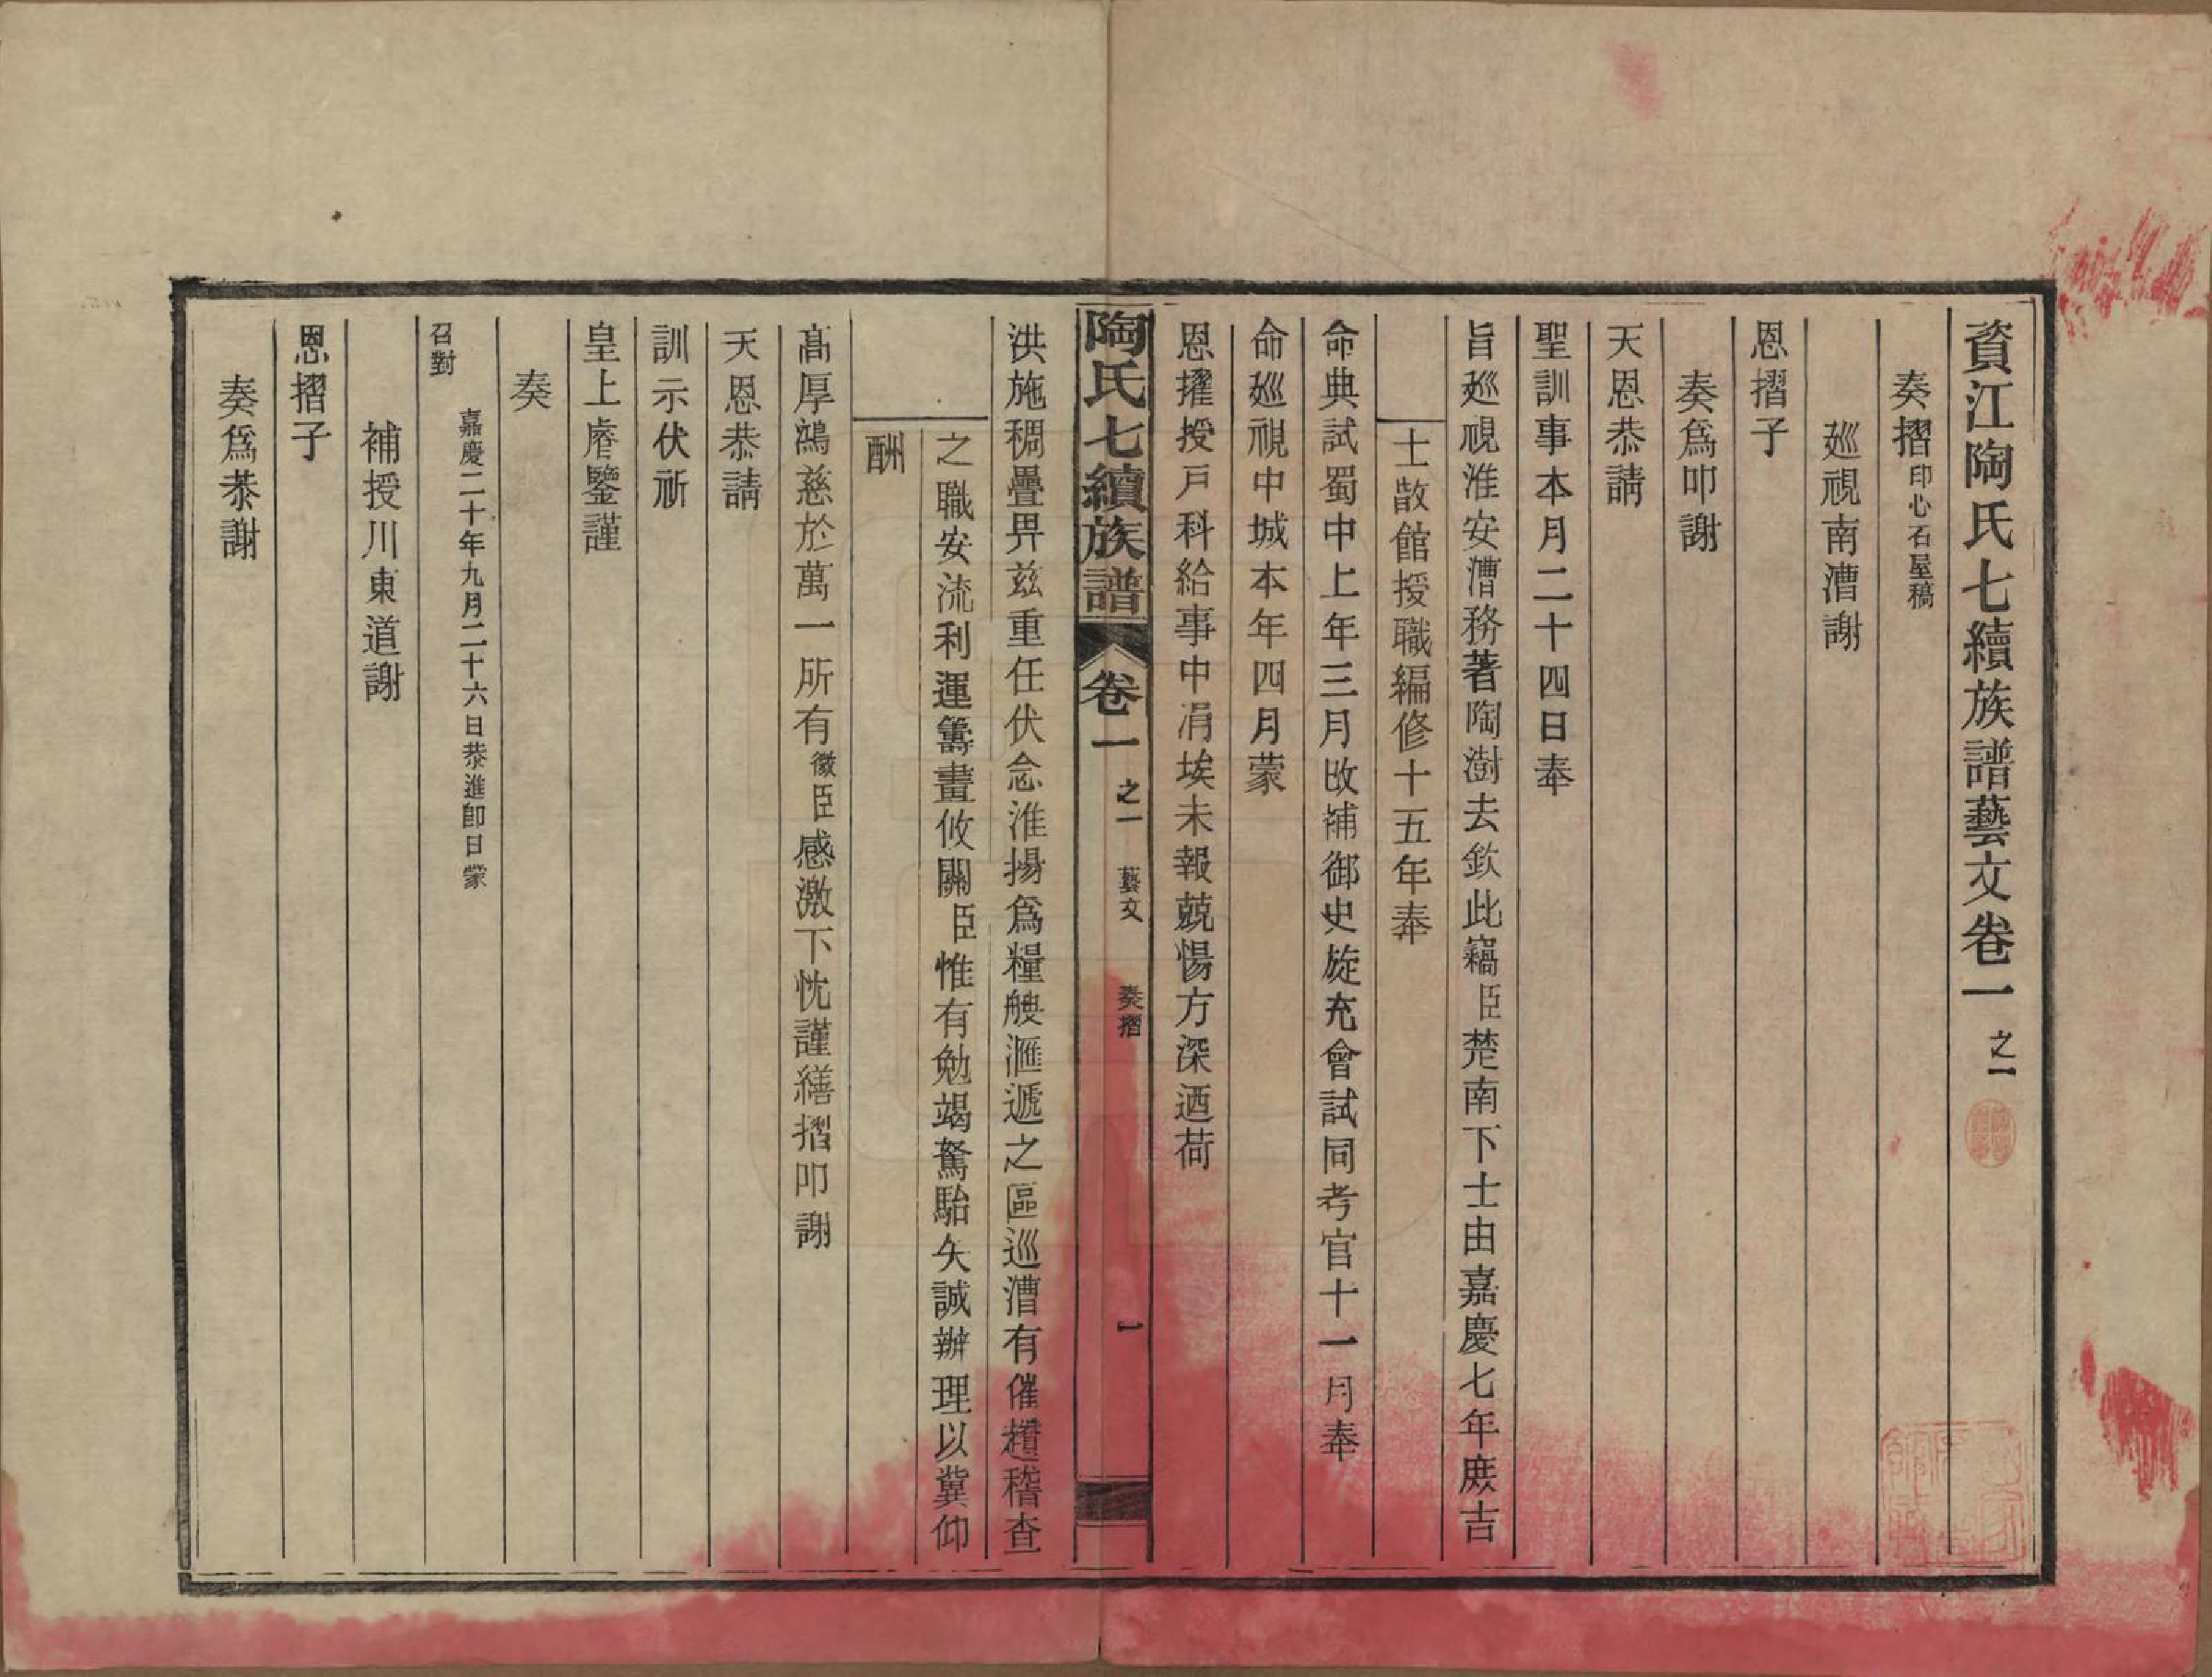 資江陶氏七續族譜藝文卷一 之一
奏摺印心石屋稿
廵視南漕謝
恩摺子
奏爲叩謝
天恩恭請
聖訓事本月二十四日奉
旨廵視淮安漕務著陶澍去欽此竊臣楚南下士由嘉慶七年庶吉
士散館授職編修十五年奉
命典試蜀中上年三月改補御史旋充會試同考官十一月奉
命廵視中城本年四月蒙
恩擢授戸科給事中涓埃未報兢惕方深迺荷
陶氏七續族譜 卷一 之一 藝文 奏摺 一
洪施稠疊畀兹重任伏念淮揚爲糧艘滙遞之區巡漕有催趲稽查
之職安流利運籌畫攸關臣惟有勉竭駑駘矢誠辦理以冀仰
酬
高厚鴻慈於萬一所有微臣感激下忱謹繕摺叩謝
天恩恭請
訓示伏祈
皇上睿鑒謹
奏
嘉慶二十年九月二十六日恭進卽日蒙
召對
補授川東道謝
恩摺子
奏爲恭謝